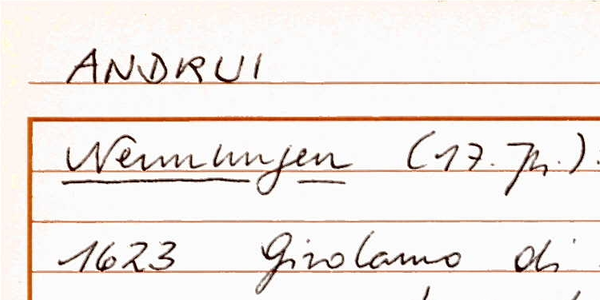 ANDRUI
Nennungen (17. Jh.).
1623 Girolamo di